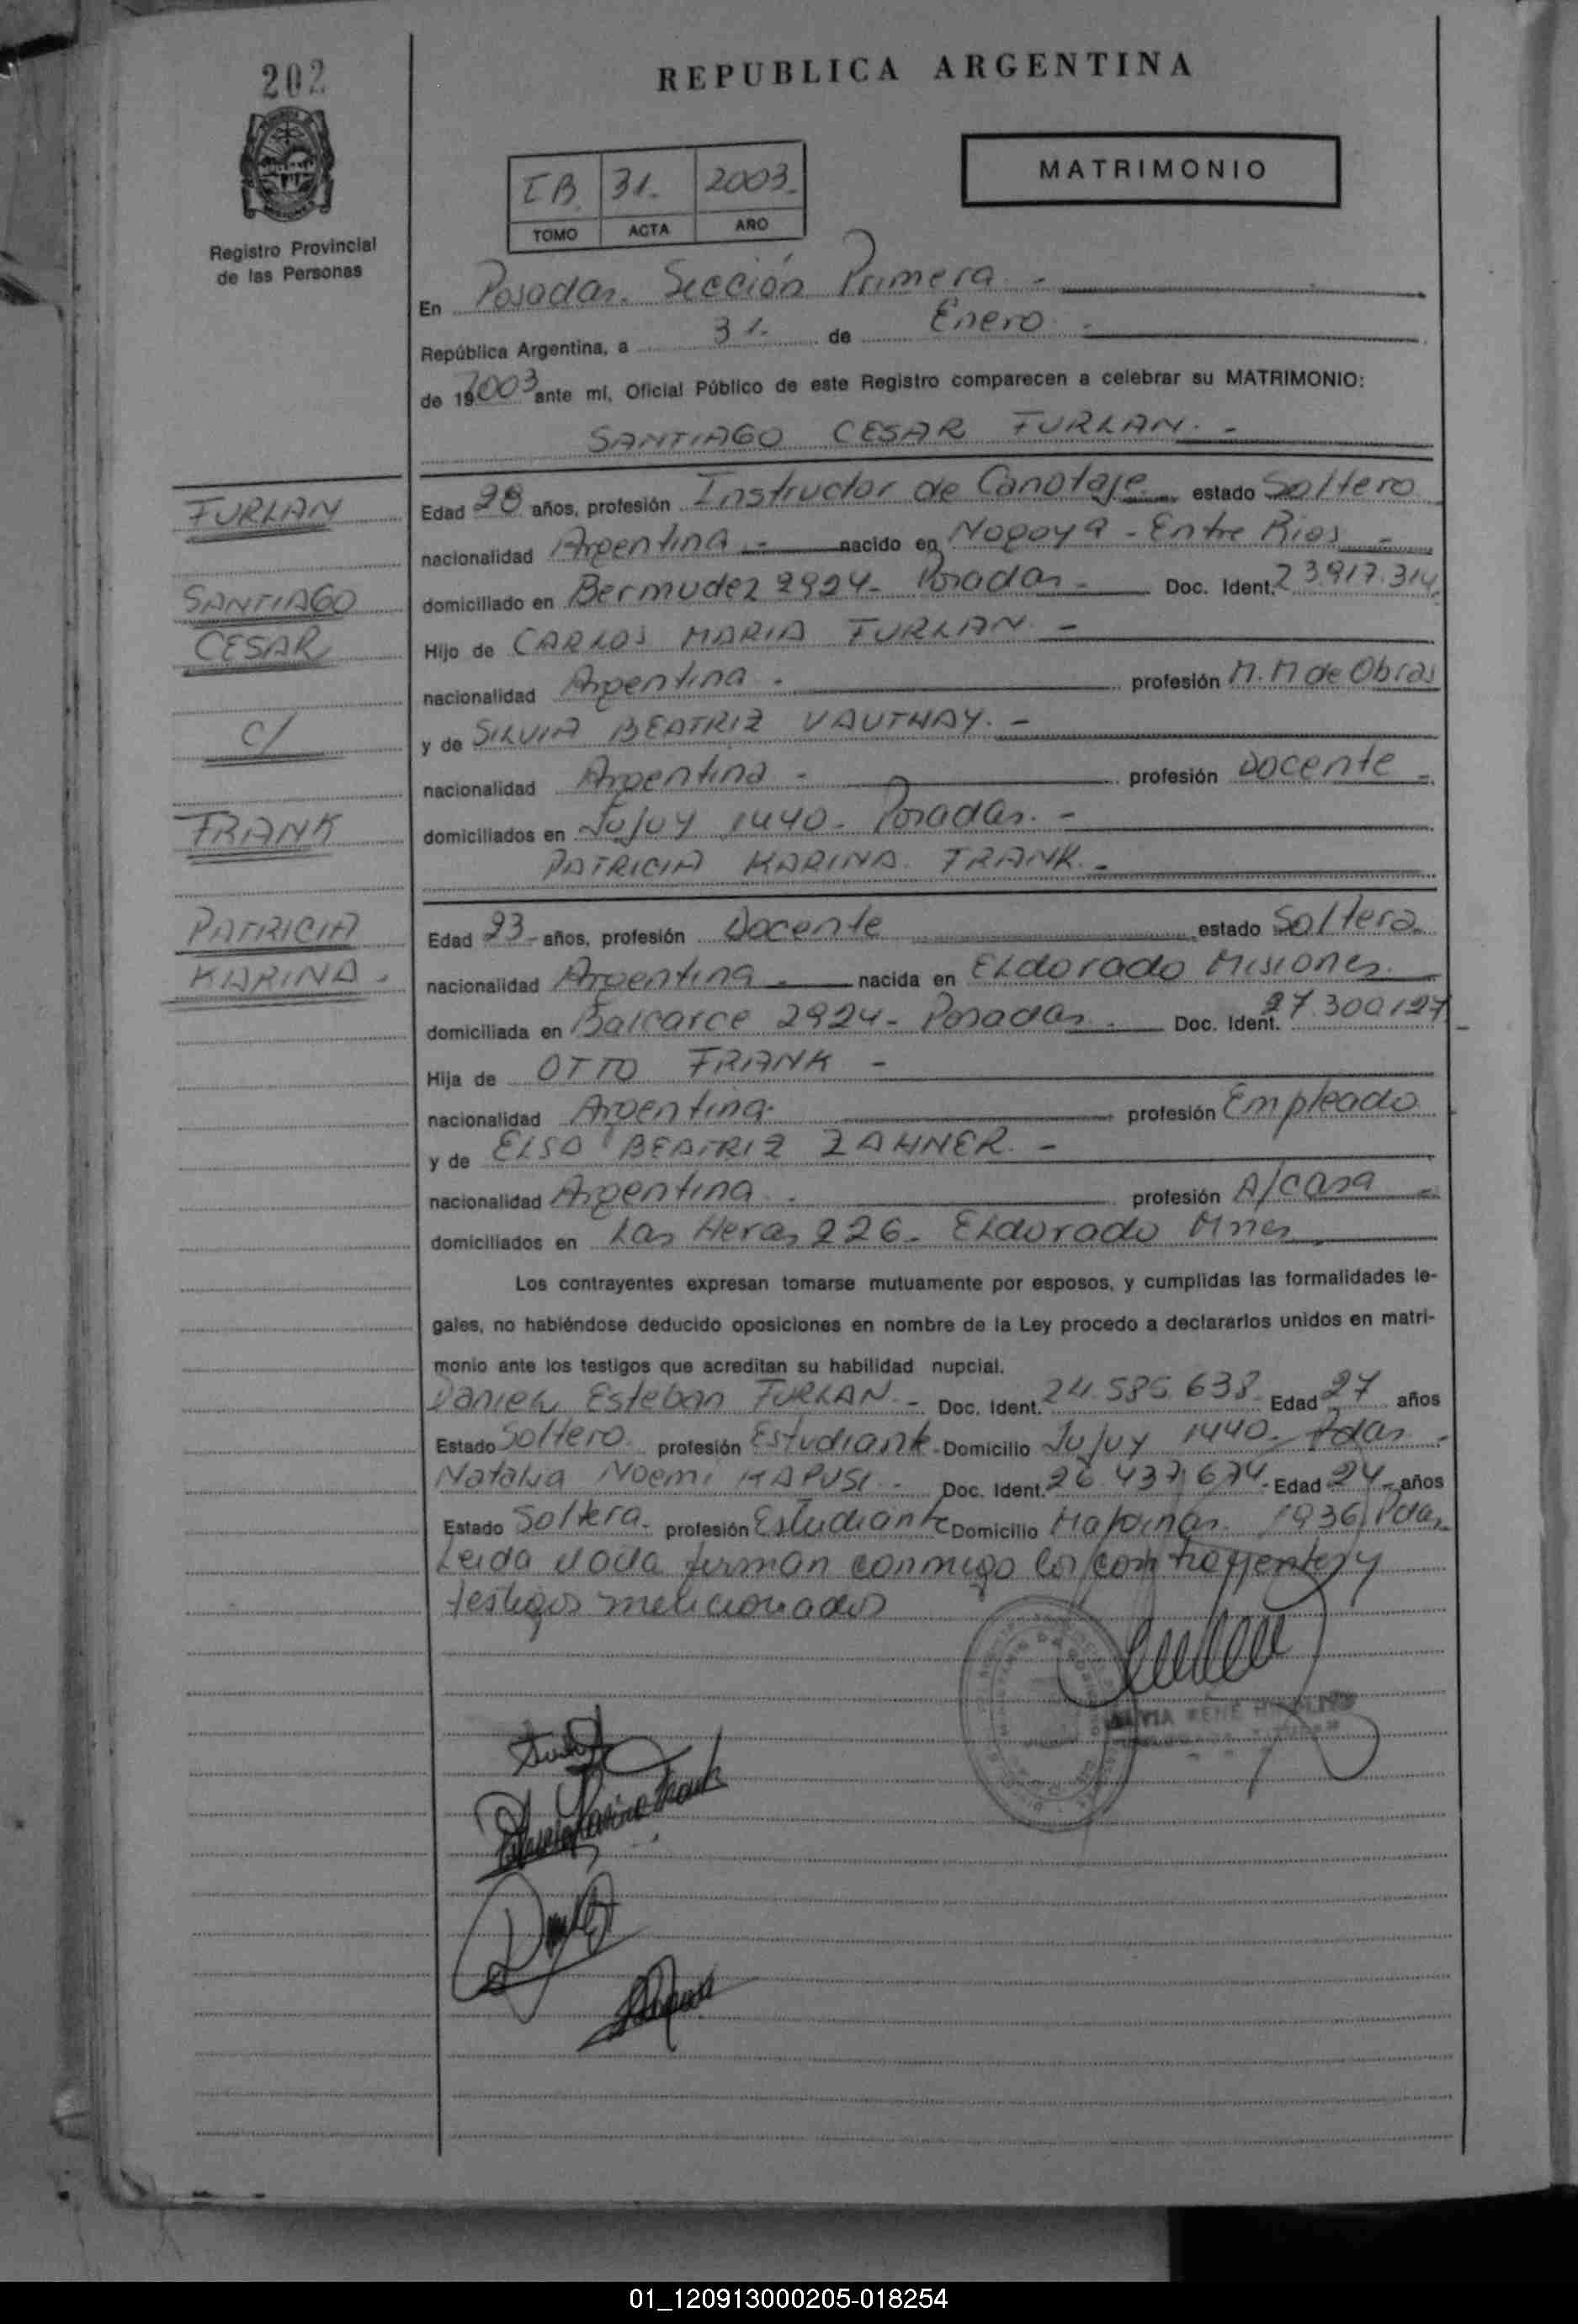 202
REPUBLICA ARGENTINA
MATRIMONIO
IB. 31. 2003.
TOMO ACTA AÑO
Registro Provincial
de las Personas
En Posadas. Sección Primera -
República Argentina, a 31. de Enero -
de 192003 ante mi, Oficial Público de este Registro comparecen a celebrar su MATRIMONIO:
SANTIAGO CESAR FURLAN. -
FURLAN
SANTIAGO
CESAR
c/
FRANK
PATRICIA
KARINA -
Edad 28 años, profesión Instructor de Canotaje estado Soltero
nacionalidad Argentina - nacido en Nogoya - Entre Rios -
domiciliado en Bermudez 2924- Posadas - Doc. Ident. 23.917.314
Hijo de CARLOS MARIA FURLAN -
nacionalidad Argentina - profesión M.M de Obras
y de SILVIA BEATRIZ VAUTHAY. -
nacionalidad Argentina - profesión Docente -
domiciliados en Jujuy 1440- Posadas. -
PATRICIA KARINA FRANK. -
Edad 23- años, profesión Docente estado Soltera.
nacionalidad Argentina - nacida en ELdorado Misiones.
domiciliada en Balcarce 2924- Posadas. Doc. Ident. 27.300127
Hija de OTTO FRANK -
nacionalidad Argentina. profesión Empleado
y de ELSA BEATRIZ ZAHNER. -
nacionalidad Argentina - profesión A/casa -
domiciliados en Las Heras 226- ELdorado Mnes
Los contrayentes expresan tomarse mutuamente por esposos, y cumplidas las formalidades le-
gales, no habiéndose deducido oposiciones en nombre de la Ley procedo a declararlos unidos en matri-
monio ante los testigos que acreditan su habilidad nupcial.
Daniel Esteban FURLAN. - Doc. Ident. 24.585.638 Edad 27 años
Estado Soltero profesión Estudiante Domicilio Jujuy 1440- Pdas -
Natalia Noemi KAPUSI - Doc. Ident. 26.437.674- Edad 24- años
Estado Soltera- profesión Estudiante Domicilio 1936 Pdas
Leida y firman conmigo los contrayentes y
testigos mencionados
RENE
01_120913000205-018254